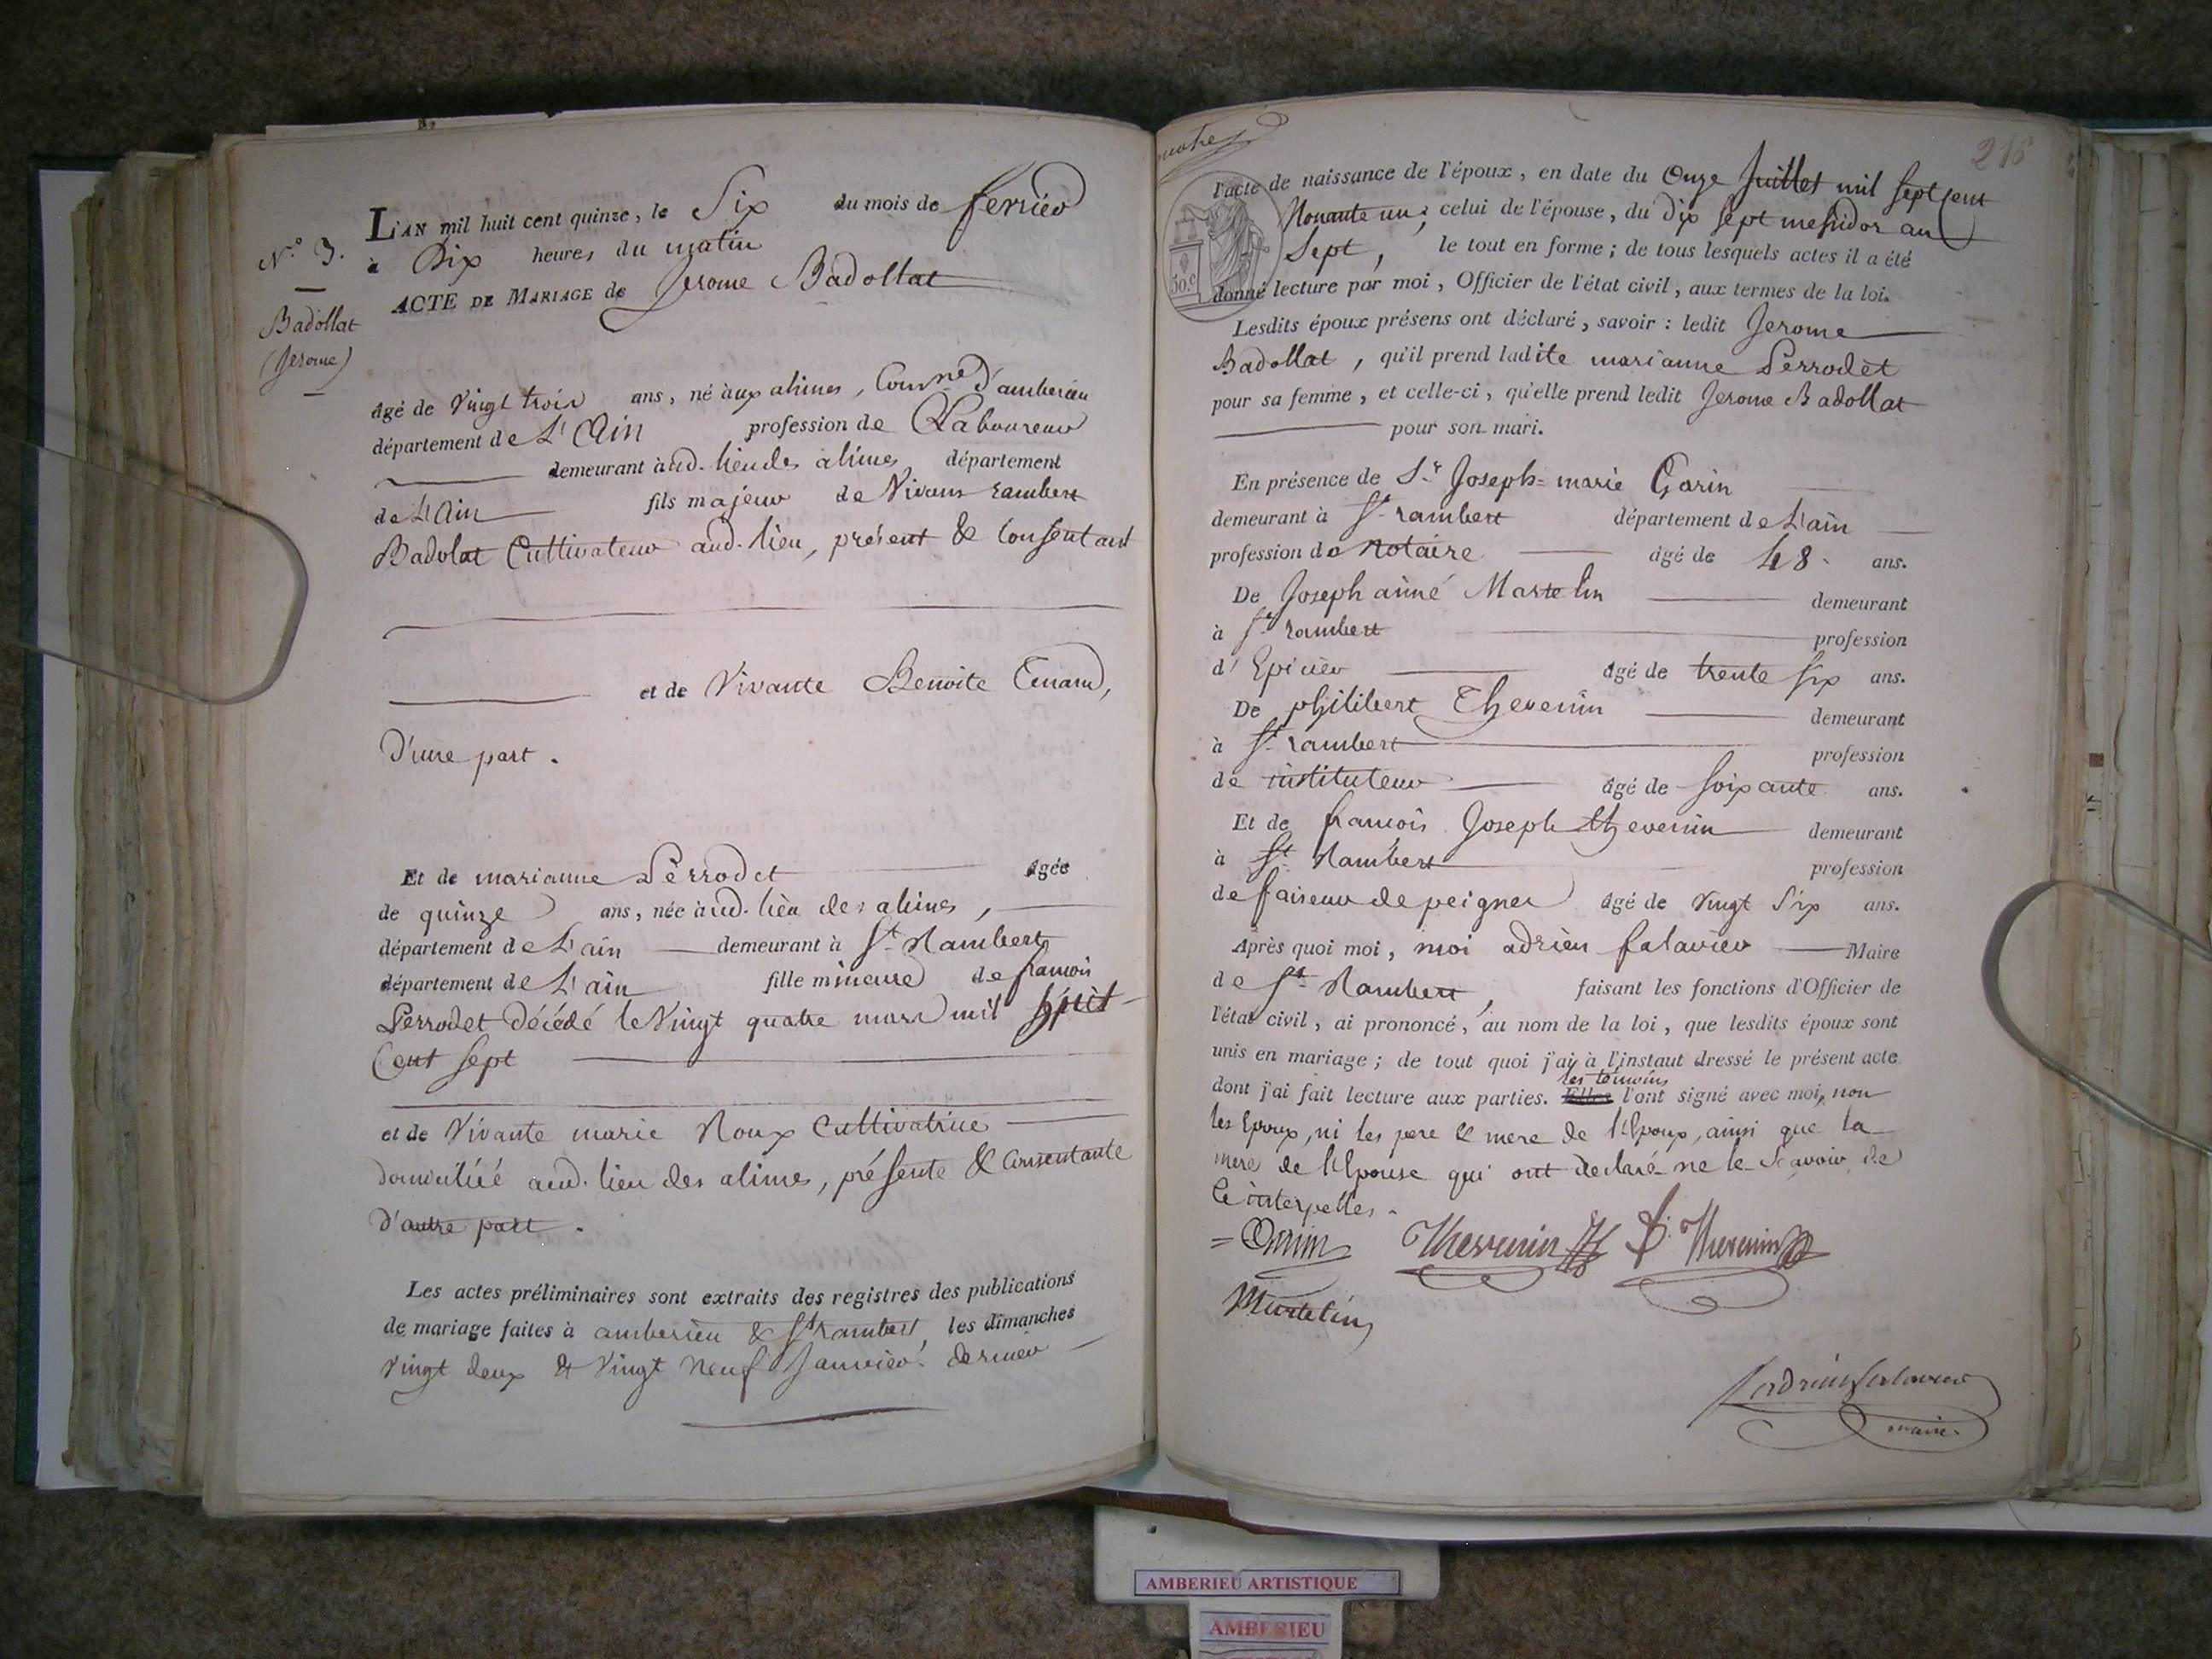 N.º 3.
Badollat
(Jerome)
L'AN mil huit cent quinze, le Six du mois de fevrier
à Dix heures du matin
ACTE DE MARIAGE de Jerome Badollat
âgé de vingt trois ans, né aux alimes, Comne d'amberieu
département de L'Ain profession de Laboureur
demeurant aud. lieu des alimes, département
de L'Ain fils majeur de Vivans rambert
Badolat Cultivateur aud. lieu, présent & Consentant
et de Vivante Benoite
D'une part.
Et de marianne Perrodet âgée
de quinze ans, née aud. lieu des alimes,
département de L'ain demeurant à St. Rambert
département de L'ain fille mineure de francois
Perrodet décédé le Vingt quatre mars mil huit
Cent Sept
et de Vivante marie Roux Cultivatrice
domiciliée aud. lieu des alimes, présente & Consentante
D'autre part.
Les actes préliminaires sont extraits des registres des publications
de mariage faites à amberieu & St. rambert, les dimanches
vingt deux & Vingt Neuf Janvier dernier
216
50.c
l'acte de naissance de l'époux, en date du Onze Juillet mil Sept Cent
Nonante un; celui de l'épouse, du dix Sept messidor an
Sept, le tout en forme; de tous lesquels actes il a été
donné lecture par moi, Officier de l'état civil, aux termes de la loi.
Lesdits époux présens ont déclaré, savoir: ledit Jerome
Badollat, qu'il prend ladite marianne Perrodet
pour sa femme, et celle-ci, qu'elle prend ledit Jerome Badollat
pour son mari.
En présence de Sr. Joseph-marie Garin
demeurant à St. rambert département de L'ain
profession de Notaire âgé de 48. ans.
De Joseph ainé Martelin demeurant
à St. rambert profession
d'Epicier âgé de trente six ans.
De philibert Thevenin demeurant
à St. rambert profession
de instituteur âgé de soixante ans.
Et de francois Joseph thevenin demeurant
à St. Rambert profession
de faiseur de peignes âgé de vingt six ans.
Après quoi moi, moi adrien falavier Maire
de St. Rambert, faisant les fonctions d'Officier de
l'état civil, ai prononcé, au nom de la loi, que lesdits époux sont
unis en mariage; de tout quoi j'ai à l'instant dressé le présent acte
les témoins
dont j'ai fait lecture aux parties. Elles l'ont signé avec moi, non
les Epoux, ni les pere & mere de l'Epoux, ainsi que la
mere de l'Epouse qui ont declaré ne le Savoir de
ce interpellés.
Thevenin F. Thevenin
Martelin
adrien falavier
maire
AMBERIEU ARTISTIQUE
AMBERIEU